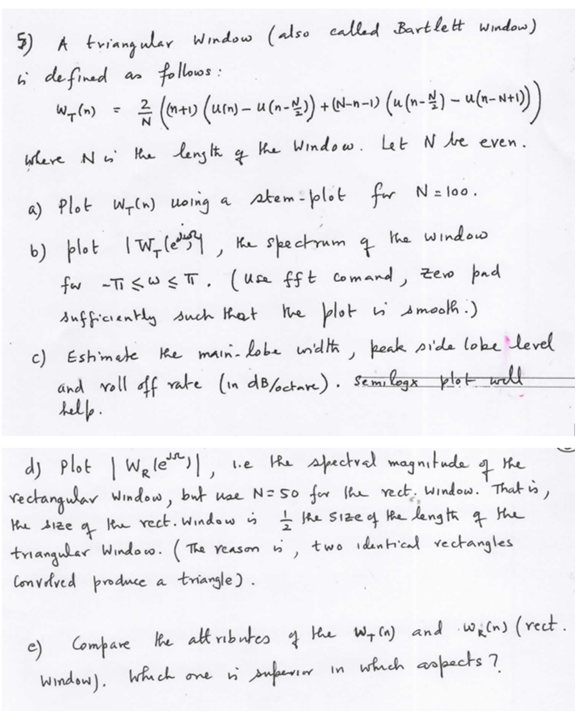 5) A triangular window (also called Bartlett window)
is defined as follows:
W_T(n) = 2/N ((n+1) (u(n) - u(n-N/2)) + (N-n-1) (u(n-N/2) - u(n-N+1)))
where N is the length of the window. Let N be even.
a) Plot W_T(n) using a stem-plot for N=100.
b) plot |W_T(e^{jω})|, the spectrum of the window
for -π ≤ ω ≤ π. (use fft comand, zero pad
sufficiently such that the plot is smooth.)
c) Estimate the main-lobe width, peak side lobe level
and roll off rate (in dB/octave). Semilogx plot will
help.
d) Plot |W_R(e^{jω})|, i.e the spectral magnitude of the
rectangular window, but use N=50 for the rect. window. That is,
the size of the rect. window is 1/2 the size of the length of the
triangular window. (The reason is, two identical rectangles
convolved produce a triangle).
e) Compare the attributes of the W_T(n) and W_R(n) (rect.
window). Which one is superior in which aspects?